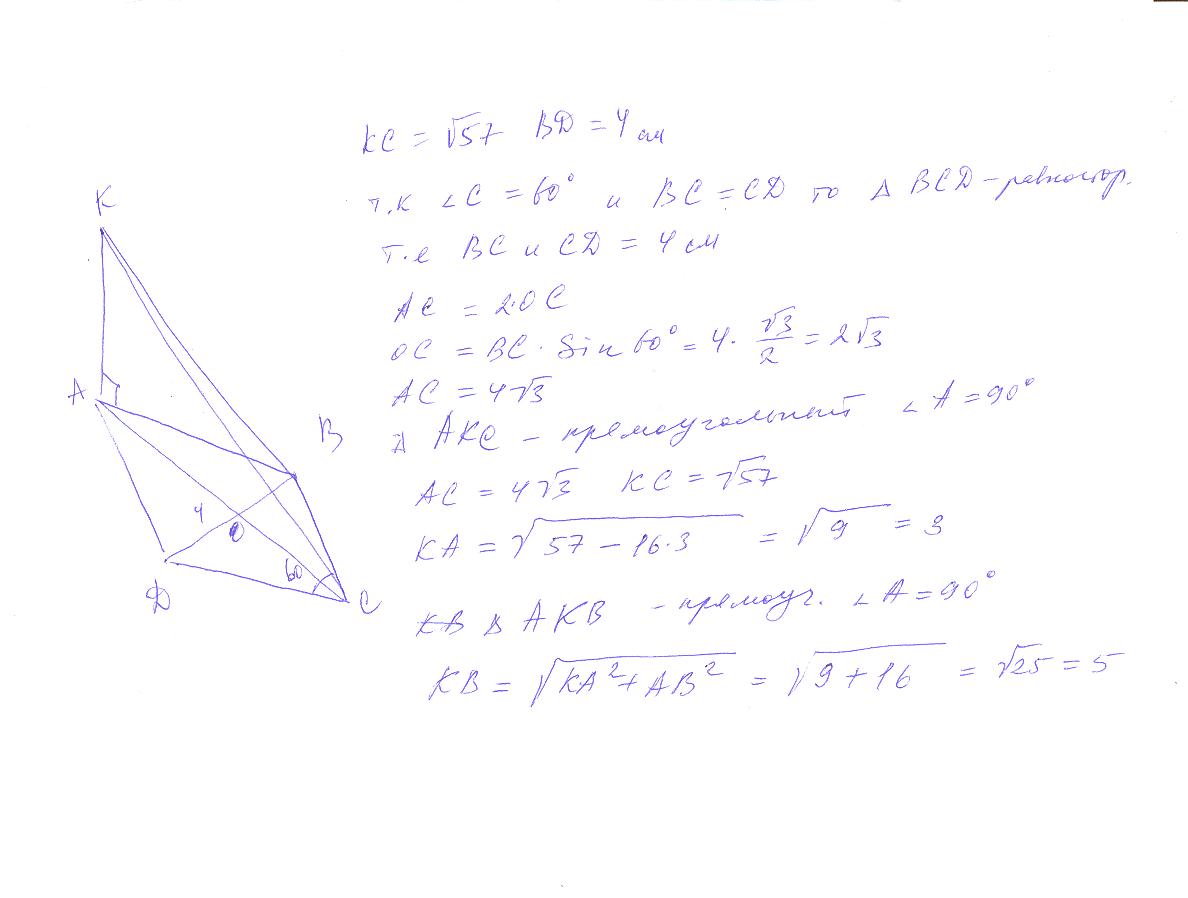 KC = √57 BD = 4 см
т.к ∠C = 60° и BC = CD то Δ BCD – равностор.
т.е BC и CD = 4 см
AC = 2·OC
OC = BC · Sin 60° = 4 · √3/2 = 2√3
AC = 4√3
Δ AKC – прямоугольный ∠A = 90°
AC = 4√3 KC = √57
KA = √(57 – 16·3) = √9 = 3
KB Δ AKB – прямоуг. ∠A = 90°
KB = √(KA² + AB²) = √(9 + 16) = √25 = 5
K
A
B
4
O
60
D
C